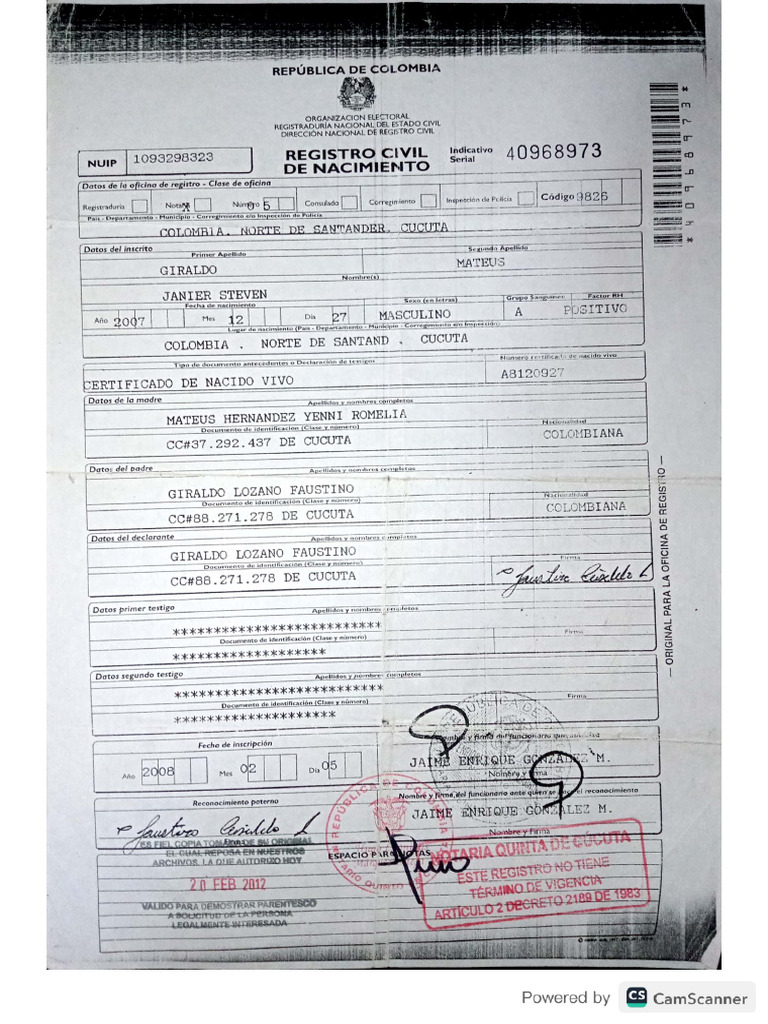 REPÚBLICA DE COLOMBIA
ORGANIZACION ELECTORAL
REGISTRADURÍA NACIONAL DEL ESTADO CIVIL
DIRECCIÓN NACIONAL DE REGISTRO CIVIL
NUIP 1093298323
REGISTRO CIVIL
DE NACIMIENTO
Indicativo
Serial 40968973
* 40968973 *
Datos de la oficina de registro - Clase de oficina
Registraduría Notaría X Número 0 5 Consulado Corregimiento Inspección de Policía Código 9826
País - Departamento - Municipio - Corregimiento e/o Inspección de Policía
COLOMBIA. NORTE DE SANTANDER. CUCUTA
Datos del inscrito
Primer Apellido Segundo Apellido
GIRALDO MATEUS
Nombre(s)
JANIER STEVEN
Fecha de nacimiento Sexo (en letras) Grupo Sanguíneo Factor RH
Año 2007 Mes 12 Día 27 MASCULINO A POSITIVO
Lugar de nacimiento (País - Departamento - Municipio - Corregimiento e/o Inspección)
COLOMBIA . NORTE DE SANTAND . CUCUTA
Tipo de documento antecedentes o Declaración de testigos Número certificado de nacido vivo
CERTIFICADO DE NACIDO VIVO A8120927
Datos de la madre
Apellidos y nombres completos
MATEUS HERNANDEZ YENNI ROMELIA
Documento de identificación (Clase y número) Nacionalidad
CC#37.292.437 DE CUCUTA COLOMBIANA
Datos del padre
Apellidos y nombres completos
GIRALDO LOZANO FAUSTINO
Documento de identificación (Clase y número) Nacionalidad
CC#88.271.278 DE CUCUTA COLOMBIANA
Datos del declarante
Apellidos y nombres completos
GIRALDO LOZANO FAUSTINO
Documento de identificación (Clase y número) Firma
CC#88.271.278 DE CUCUTA Faustino Giraldo L
Datos primer testigo
Apellidos y nombres completos
**************************
Documento de identificación (Clase y número) Firma
*******************
Datos segundo testigo
Apellidos y nombres completos
**************************
Documento de identificación (Clase y número) Firma
********************
— ORIGINAL PARA LA OFICINA DE REGISTRO —
Fecha de inscripción
Nombre y firma del funcionario que autoriza
Año 2008 Mes 02 Día 05
JAIME ENRIQUE GONZALEZ M.
Nombre y firma
Reconocimiento paterno
Nombre y firma del funcionario ante quien se hace el reconocimiento
Faustino Giraldo L
JAIME ENRIQUE GONZALEZ M.
Nombre y firma
ESPACIO PARA NOTAS
ES FIEL COPIA TOMADA DE SU ORIGINAL
EL CUAL REPOSA EN NUESTROS
ARCHIVOS. LA QUE AUTORIZO HOY
20 FEB 2012
VALIDO PARA DEMOSTRAR PARENTESCO
A SOLICITUD DE LA PERSONA
LEGALMENTE INTERESADA
REPUBLICA DE COLOMBIA
NOTARIO QUINTO
NOTARIA QUINTA DE CÚCUTA
ESTE REGISTRO NO TIENE
TÉRMINO DE VIGENCIA
ARTÍCULO 2 DECRETO 2189 DE 1983
Powered by CS CamScanner